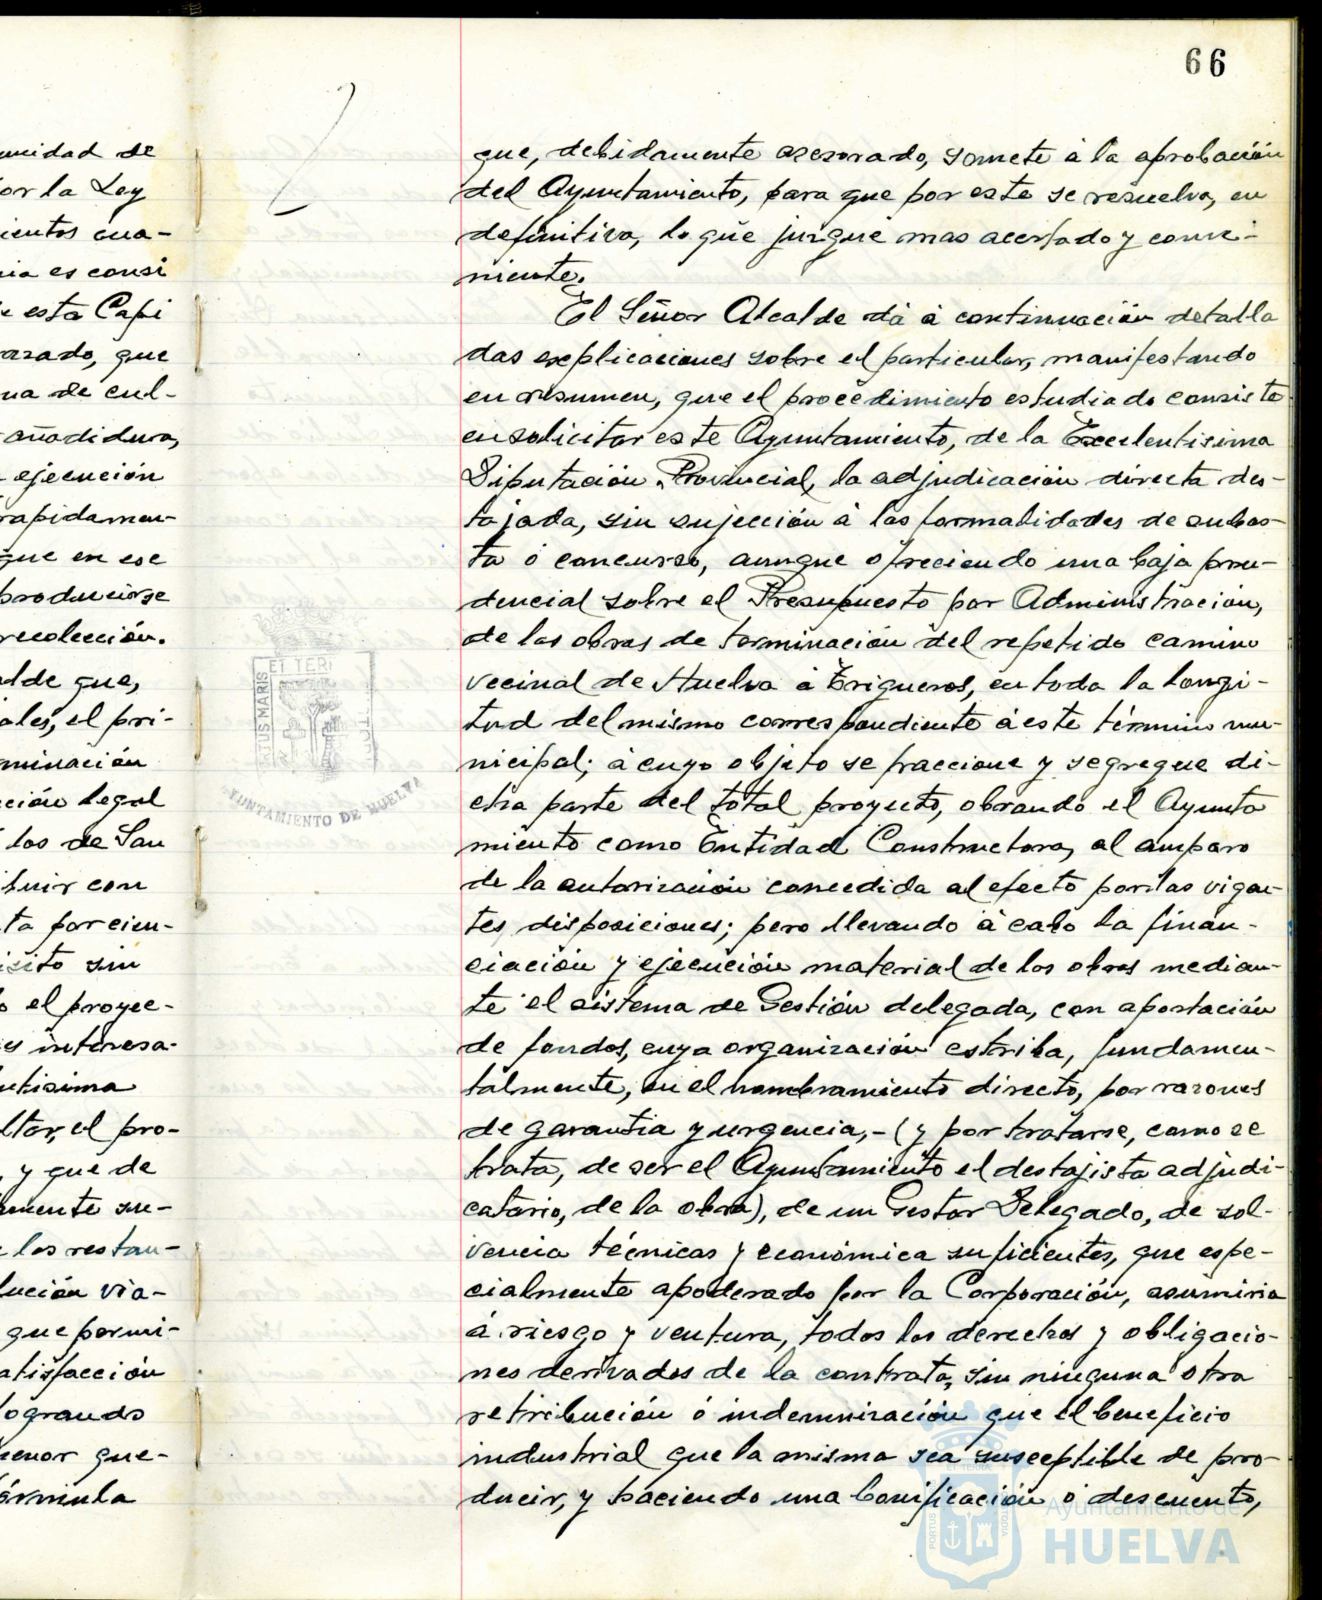 66
unidad de
or la Ley
ientos cua-
ia es consi
e esta Capi
azado, que
na de cul-
añadidura,
ejecución
rapidamen-
que en ese
producirse
recolección.
alde que,
ales, el pri-
minación
ción legal
los de San
buir con
ta por cien-
isito sin
o el proyec-
es interesa-
ntisima
ltar, el pro-
, y que de
mente su-
e los restan-
lución via-
que permi-
atisfacción
logrando
menor que-
órmula
que, debidamente asesorado, somete á la aprobación
del Ayuntamiento, para que por este se resuelva, en
definitiva, lo que juzgue mas acertado y conve-
niente.
El Señor Alcalde dá á continuación detalla
das explicaciones sobre el particular, manifestando
en resumen, que el procedimiento estudiado consiste
en solicitar este Ayuntamiento, de la Excelentisima
Diputación Provincial, la adjudicación directa des-
tajada, sin sujección á las formalidades de subas-
ta ó concurso, aunque ofreciendo una baja pru-
dencial sobre el Presupuesto por Administración,
de las obras de terminación del repetido camino
vecinal de Huelva á Trigueros, en toda la longi-
tud del mismo correspondiente á este término mu-
nicipal; á cuyo objeto se fraccione y segregue di-
cha parte del total proyecto, obrando el Ayunta
miento como Entidad Constructora, al amparo
de la autorización concedida al efecto por las vigen-
tes disposiciones; pero llevando á cabo la finan-
ciación y ejecución material de las obras median-
te el sistema de Gestión delegada, con aportación
de fondos, cuya organización estriba, fundamen-
talmente, en el nombramiento directo, por razones
de garantia y urgencia,-(y por tratarse, como se
trata, de ser el Ayuntamiento el destajista adjudi-
catario, de la obra), de un Gestor Delegado, de sol-
vencia técnicas y económica suficientes, que espe-
cialmente apoderado por la Corporación, asumiria
á riesgo y ventura, todos los derechos y obligacio-
nes derivados de la contrata, sin ninguna otra
retribución ó indemnización que el beneficio
industrial que la misma sea susceptible de pro-
ducir, y haciendo una bonificación ó descuento,
ET TERR
PORTUS MARIS
AYUNTAMIENTO DE HUELVA
Ayuntamiento de
HUELVA